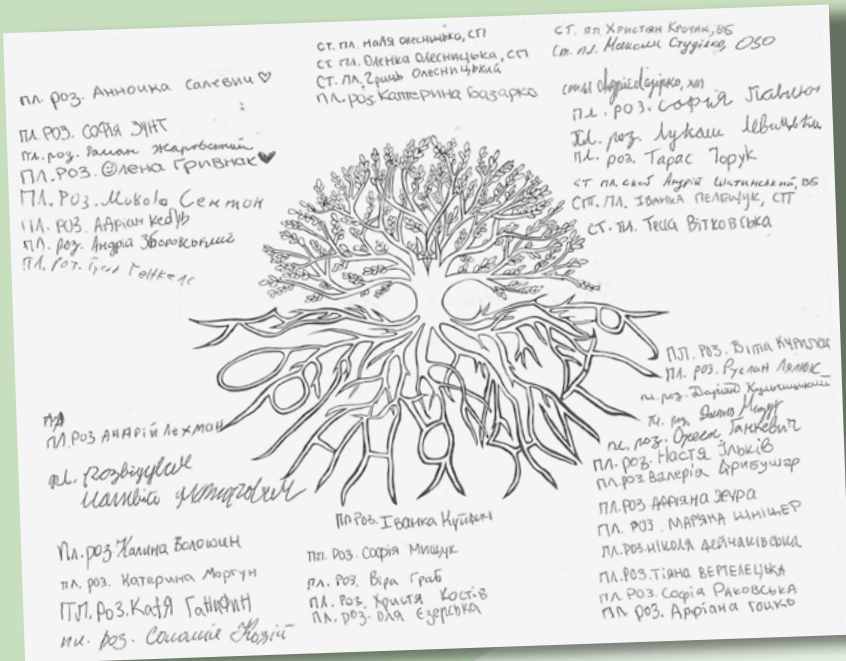 пл. роз. Анничка Салевич ♡
ПЛ. РОЗ. СОФІЯ ЗУНТ
пл. роз. Роман Жаровський
ПЛ. РОЗ. Олена Гривнак♥
ПЛ. РОЗ. Микола Сентон
ПЛ. РОЗ. Адріан
ПЛ. роз. Андрій Зборовський
ПЛ. роз.
СТ. ПЛ. МАЙЯ ОЛЕСНИЦЬКА, СП
СТ. ПЛ. ОЛЕНКА ОЛЕСНИЦЬКА, СП
СТ. ПЛ. Гриць Олесницький
ПЛ. роз. Катерина Базарко
СТ. ПЛ. ХРИСТІЯН КРОЧАК, ВБ
Ст. пл. Максим Студілко, ОЗО
ПЛ. РОЗ. Софія
Пл. роз. Лукаш Левицький
ПЛ. роз. Тарас Торук
СТ. ПЛ. скоб Андрій Шатинський, ВБ
СТ. ПЛ. ІВАНКА ПЕЛЕЩУК, СП
СТ. ПЛ. Теса Вітковська
ПЛ. РОЗ. Віта Курилец
ПЛ. роз. Руслан
пл. роз. Даріан Кульчицький
Пл. роз.
пл. роз. Орест Ганкевич
ПЛ. роз. Настя Ільків
ПЛ. роз Валерія Дрибушар
ПЛ. РОЗ АДРІЯНА ЖУРА
ПЛ. РОЗ. МАР'ЯНА ШНІЦЕР
ПЛ. РОЗ. НІКОЛЯ ДЕЙЧАКІВСЬКА
ПЛ. РОЗ. ТІЯНА ВЕРТЕЛЕЦЬКА
ПЛ. РОЗ. Софія РАКОВСЬКА
ПЛ. роз. Адріана Гоцко
ПЛ
ПЛ. РОЗ АНДРІЙ ЛЕХМАН
пл. розвідувач
Пл. роз. Калина Волошин
ПЛ. роз. Катерина Моргун
ПЛ. РОЗ. КАТЯ ГАНИФИН
пл. роз. Соломія Козій
ПЛ РОЗ. Іванка Куйдич
ПЛ. РОЗ. Софія Мищук
ПЛ. РОЗ. Віра Граб
ПЛ. РОЗ. Христя Костів
ПЛ. роз. Оля Єзерська